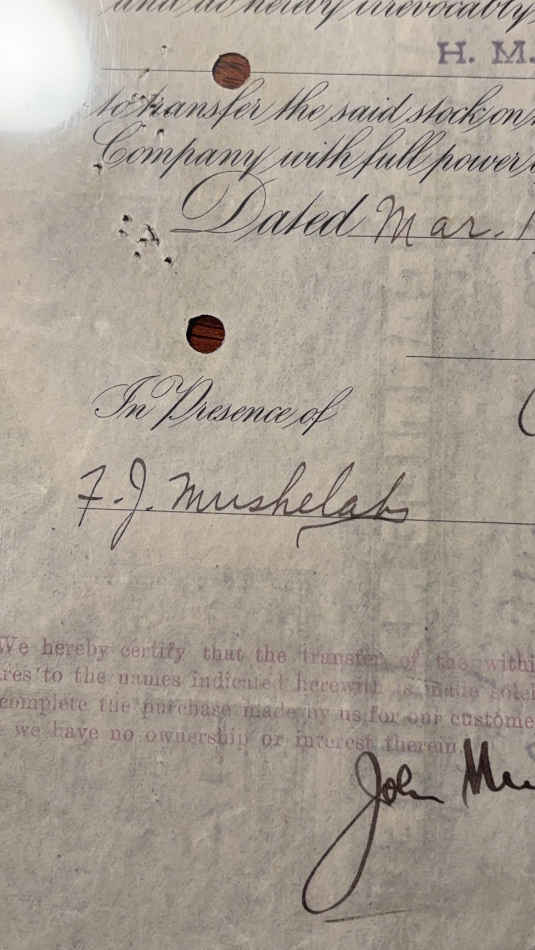 and do hereby irrevocably
H. M.
to transfer the said stock on
Company with full power
Dated Mar. 1
In Presence of
F. J.
We hereby certify that the transfer of the within
res to the names indicated herewith is made solel
complete the purchase made by us for our custome
we have no ownership or interest therein.
John